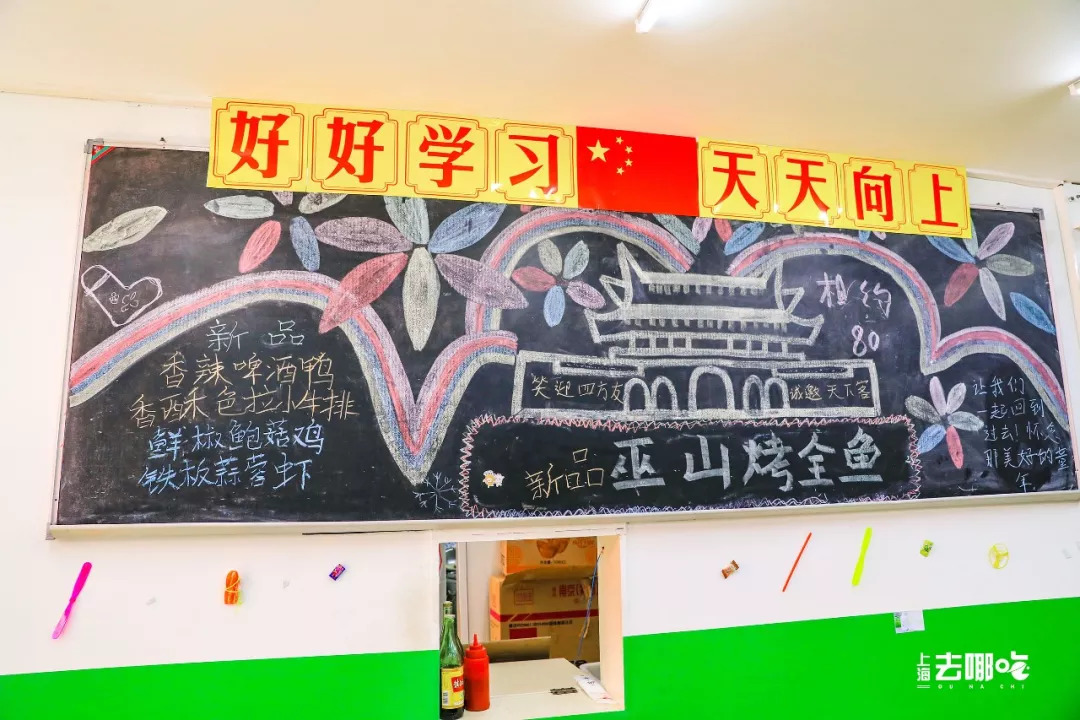 好好学习 天天向上
相约
80
新品
香辣啤酒鸭
香酥米色拉小牛排
鲜椒鲍菇鸡
铁板蒜蓉虾
笑迎四方友
诚邀天下客
新品 巫山烤全鱼
让我们
一起回到
过去!怀念
那美好的童
年
上海去哪吃
QU NA CHI